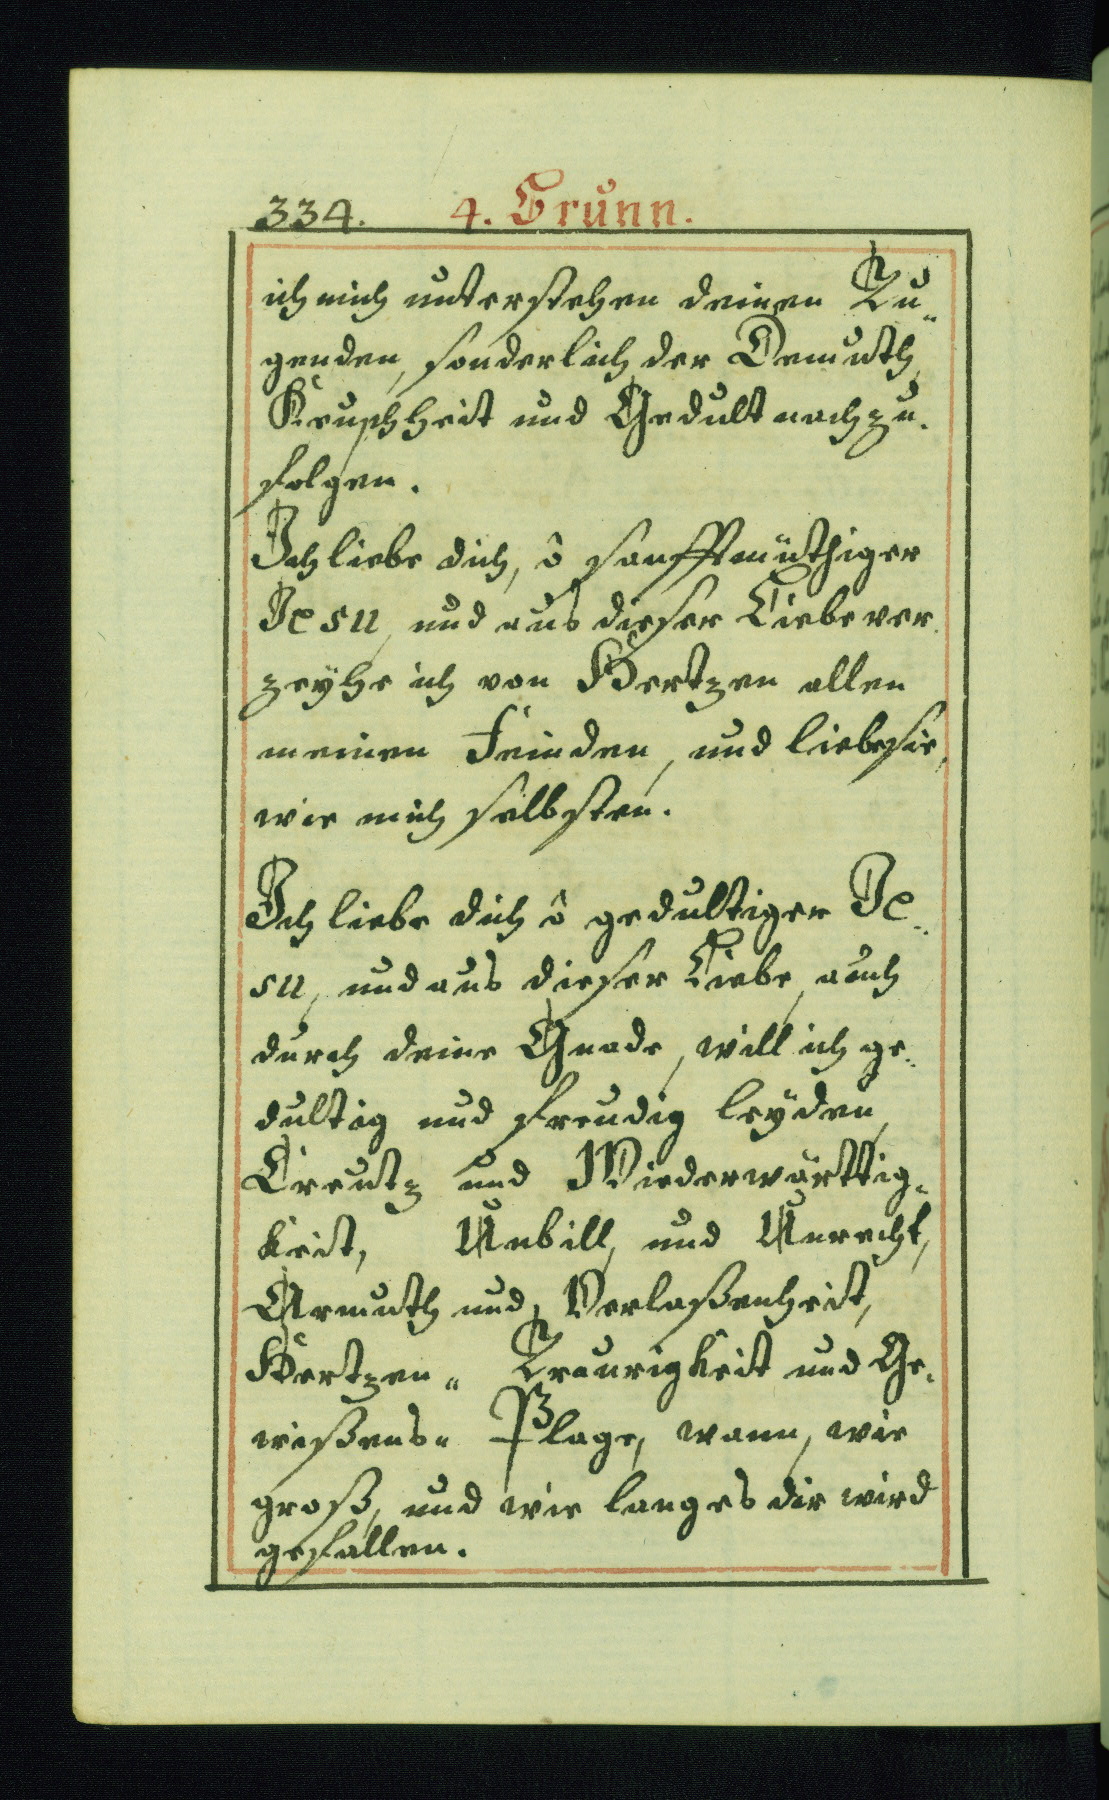 334. 4. Brunn.
ich mich unterstehen deinen Tu„
genden, sonderlich der Demuth
Keuschheit und Gedult nachzu„
folgen.
Ich liebe dich, ô sanfftmüthiger
Jesu, und aus dieser Liebe ver„
zeÿhe ich von Hertzen allen
meinen Feinden, und liebe sie,
wie mich selbsten.
Ich liebe dich ô gedultiger Je„
su, und aus dieser Liebe, auch
durch deine Gnade, will ich ge„
dultig und freudig leÿden,
Creutz und Wiederwärttig„
keit, Unbill, und Unrecht,
Armuth und Verlaßenheit,
Hertzen„ Traurigkeit und Ge„
wißens„ Plage, wann, wie
groß, und wie lang es dir wird
gefallen.